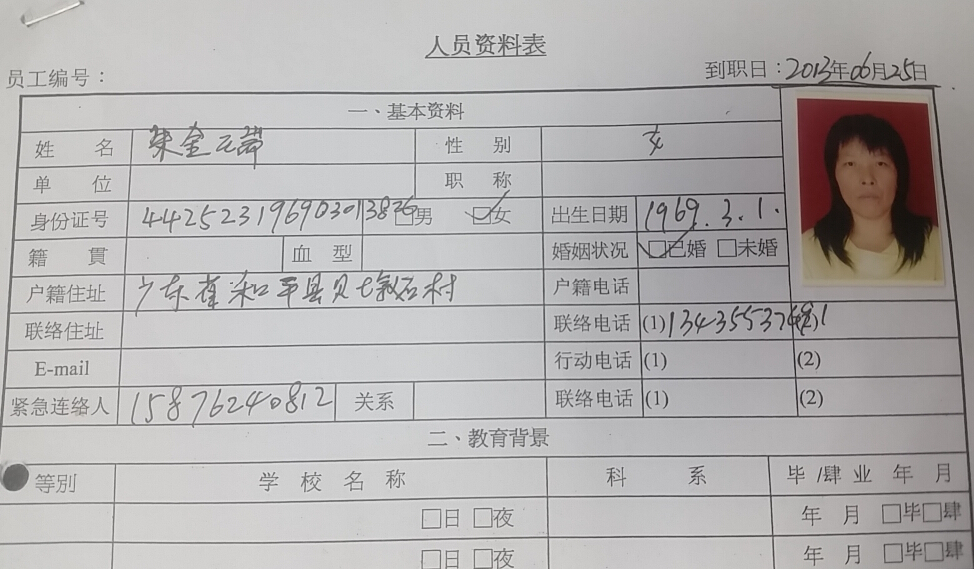 人员资料表
员工编号： 到职日：2013年06月25日
一、基本资料
姓 名 朱金 性 别 女
单 位 职 称
身份证号 442523196903013826 □男 ☑女 出生日期 1969.3.1.
籍 貫 血 型 婚姻状况 ☑已婚 □未婚
户籍住址 广东省和平县贝 村 户籍电话
联络住址 联络电话 (1) (2)
E-mail 行动电话 (1) (2)
紧急连络人 15876240812 关系 联络电话 (1) (2)
二、教育背景
等別 学 校 名 称 科 系 毕/肆 业 年 月
□日 □夜 年 月 □毕□肆
□日 □夜 年 月 □毕□肆